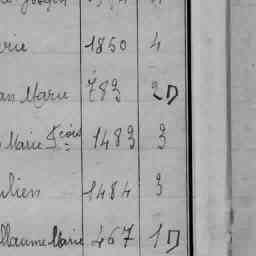 rie 1850 4
an Marie 783 2D
Marie Fcois 1483 3
ulien 1484 3
llaume Marie 467 1D